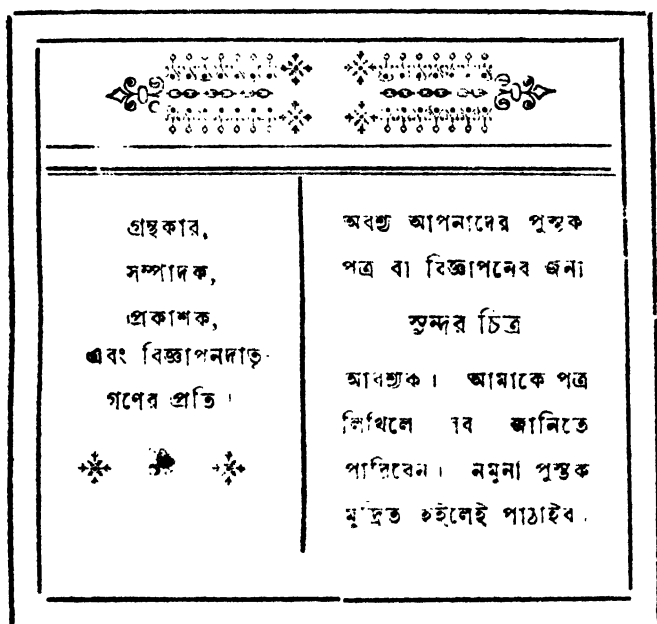 গ্রন্থকার,
সম্পাদক,
প্রকাশক,
এবং বিজ্ঞাপনদাতৃ-
গণের প্রতি।
অবশ্য আপনাদের পুস্তক
পত্র বা বিজ্ঞাপনের জন্য
সুন্দর চিত্র
আবশ্যক। আমাকে পত্র
লিখিলে জানিতে
পারিবেন। নমুনা পুস্তক
মুদ্রিত হইলেই পাঠাইব।